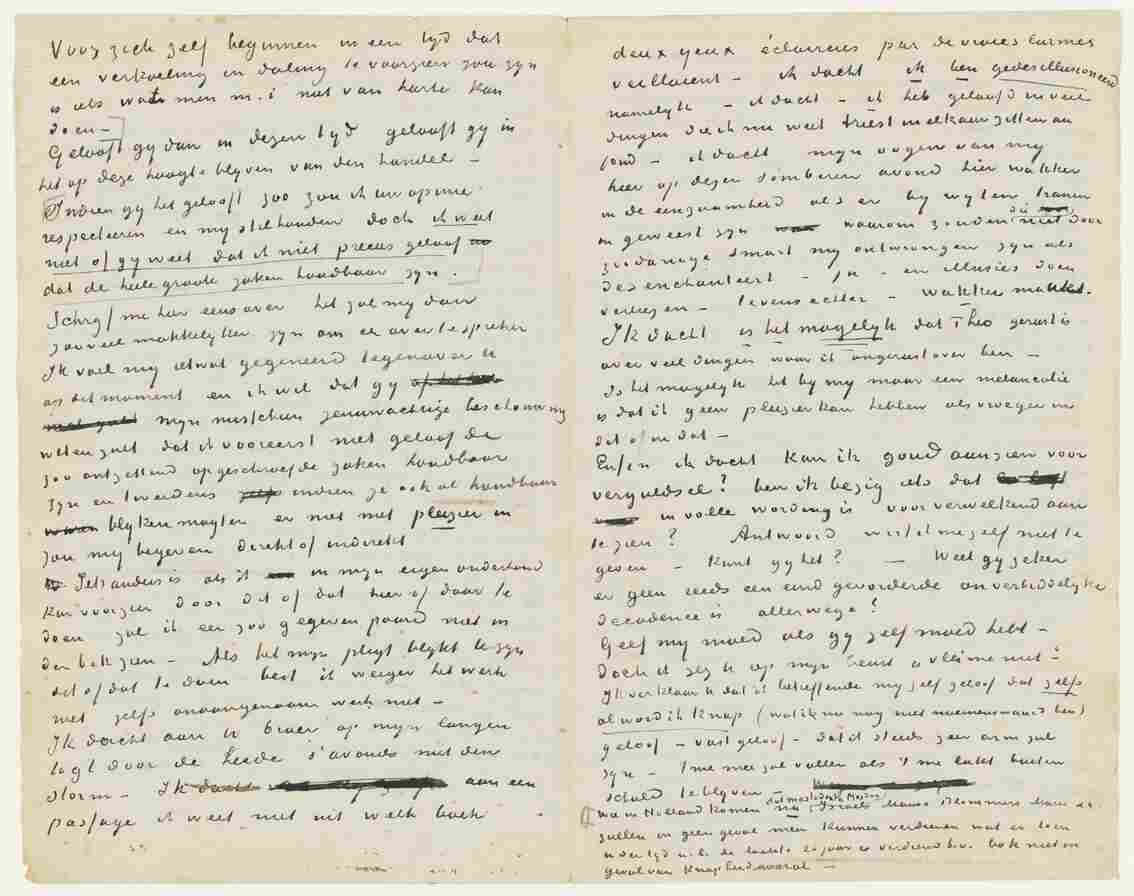 Voor zich zelf beginnen in een tyd dat
een verkoeling en daling te voorzien zou zyn
is iets wat men m.i niet van harte kan
doen –
Gelooft gy dan in dezen tyd gelooft gy in
het op deze hoogte blyven van den handel –
Indien gy het gelooft zoo zou ik uw opinie
respecteeren en my stilhouden doch ik weet
niet of gy weet dat ik niet precies geloof
dat de heele groote zaken houdbaar zyn.
Schryf me hier eens over het zal my dan
zooveel makkelyker zyn om er over te spreken
Ik voel my ietwat gegeneerd tegenover u
op dit moment en ik wil dat gy
myn misschien zenuwachtige beschouwing
weten zult dat ik vooreerst niet geloof de
zoo ontzettend opgeschroefde zaken houdbaar
zyn en tweedens indien ze ook al houdbaar
blyken mogten er niet met plezier in
zou my begeven direkt of indirekt
Iets anders is als ik in myn eigen onderhoud
kan voorzien door dit of dat hier of daar te
doen zal ik een zoo gegeven paard niet in
den bek zien – Als het myn pligt blykt te zyn
dit of dat te doen best ik weiger het werk
niet zelfs onaangenaam werk niet –
Ik dacht aan U broer op myn langen
togt door de heide s'avonds met den
storm – Ik dacht aan een
passage ik weet niet uit welk boek
deux yeux éclaircies par de vraies larmes
veillaient – ik dacht ik ben gedesillusioneerd
namelyk – ik dacht – ik heb geloofd in veel
dingen die ik nu weet triest in elkaar zitten au
fond – ik dacht myn oogen van my
hier op dezen somberen avond hier wakker
in de eenzaamheid als er by wylen tranen
in geweest zyn waarom zouden die niet door
zoodanige smart my ontwrongen zyn als
desenchanteert – ja – en illusies doen
verliezen – tevens echter – wakker maakt.
Ik dacht is het mogelyk dat Theo gerust is
over veel dingen waar ik ongerust over ben –
Is het mogelyk het by my maar een melancolie
is dat ik geen plezier kan hebben als vroeger in
dit of in dat –
Enfin ik dacht kan ik goud aanzien voor
verguldsel? ben ik bezig iets dat
in volle wording is voor verwelkend aan
te zien? Antwoord wist ik mezelf niet te
geven – Kunt gy het? – Weet gy zeker
er geen reeds een eind gevorderde onverbiddelyke
decadence is allerwege?
Geef my moed als gy zelf moed hebt –
Doch ik zeg U op myn beurt vlei me niet
Ik verklaar U dat ik betreffende my zelf geloof dat zelfs
al word ik knap (wat ik nu nog niet noemenswaard ben)
geloof – vast geloof – dat ik steeds zeer arm zal
zyn – 't me mee zal vallen als 't me lukt buiten
schuld te blyven –
na Israels Mauve
zullen in geen geval meer kunnen verdienen wat er toen
in der tyd n.b. de laatste 20 jaar is verdiend b.v. ook niet in
geval van knapheid vooral –